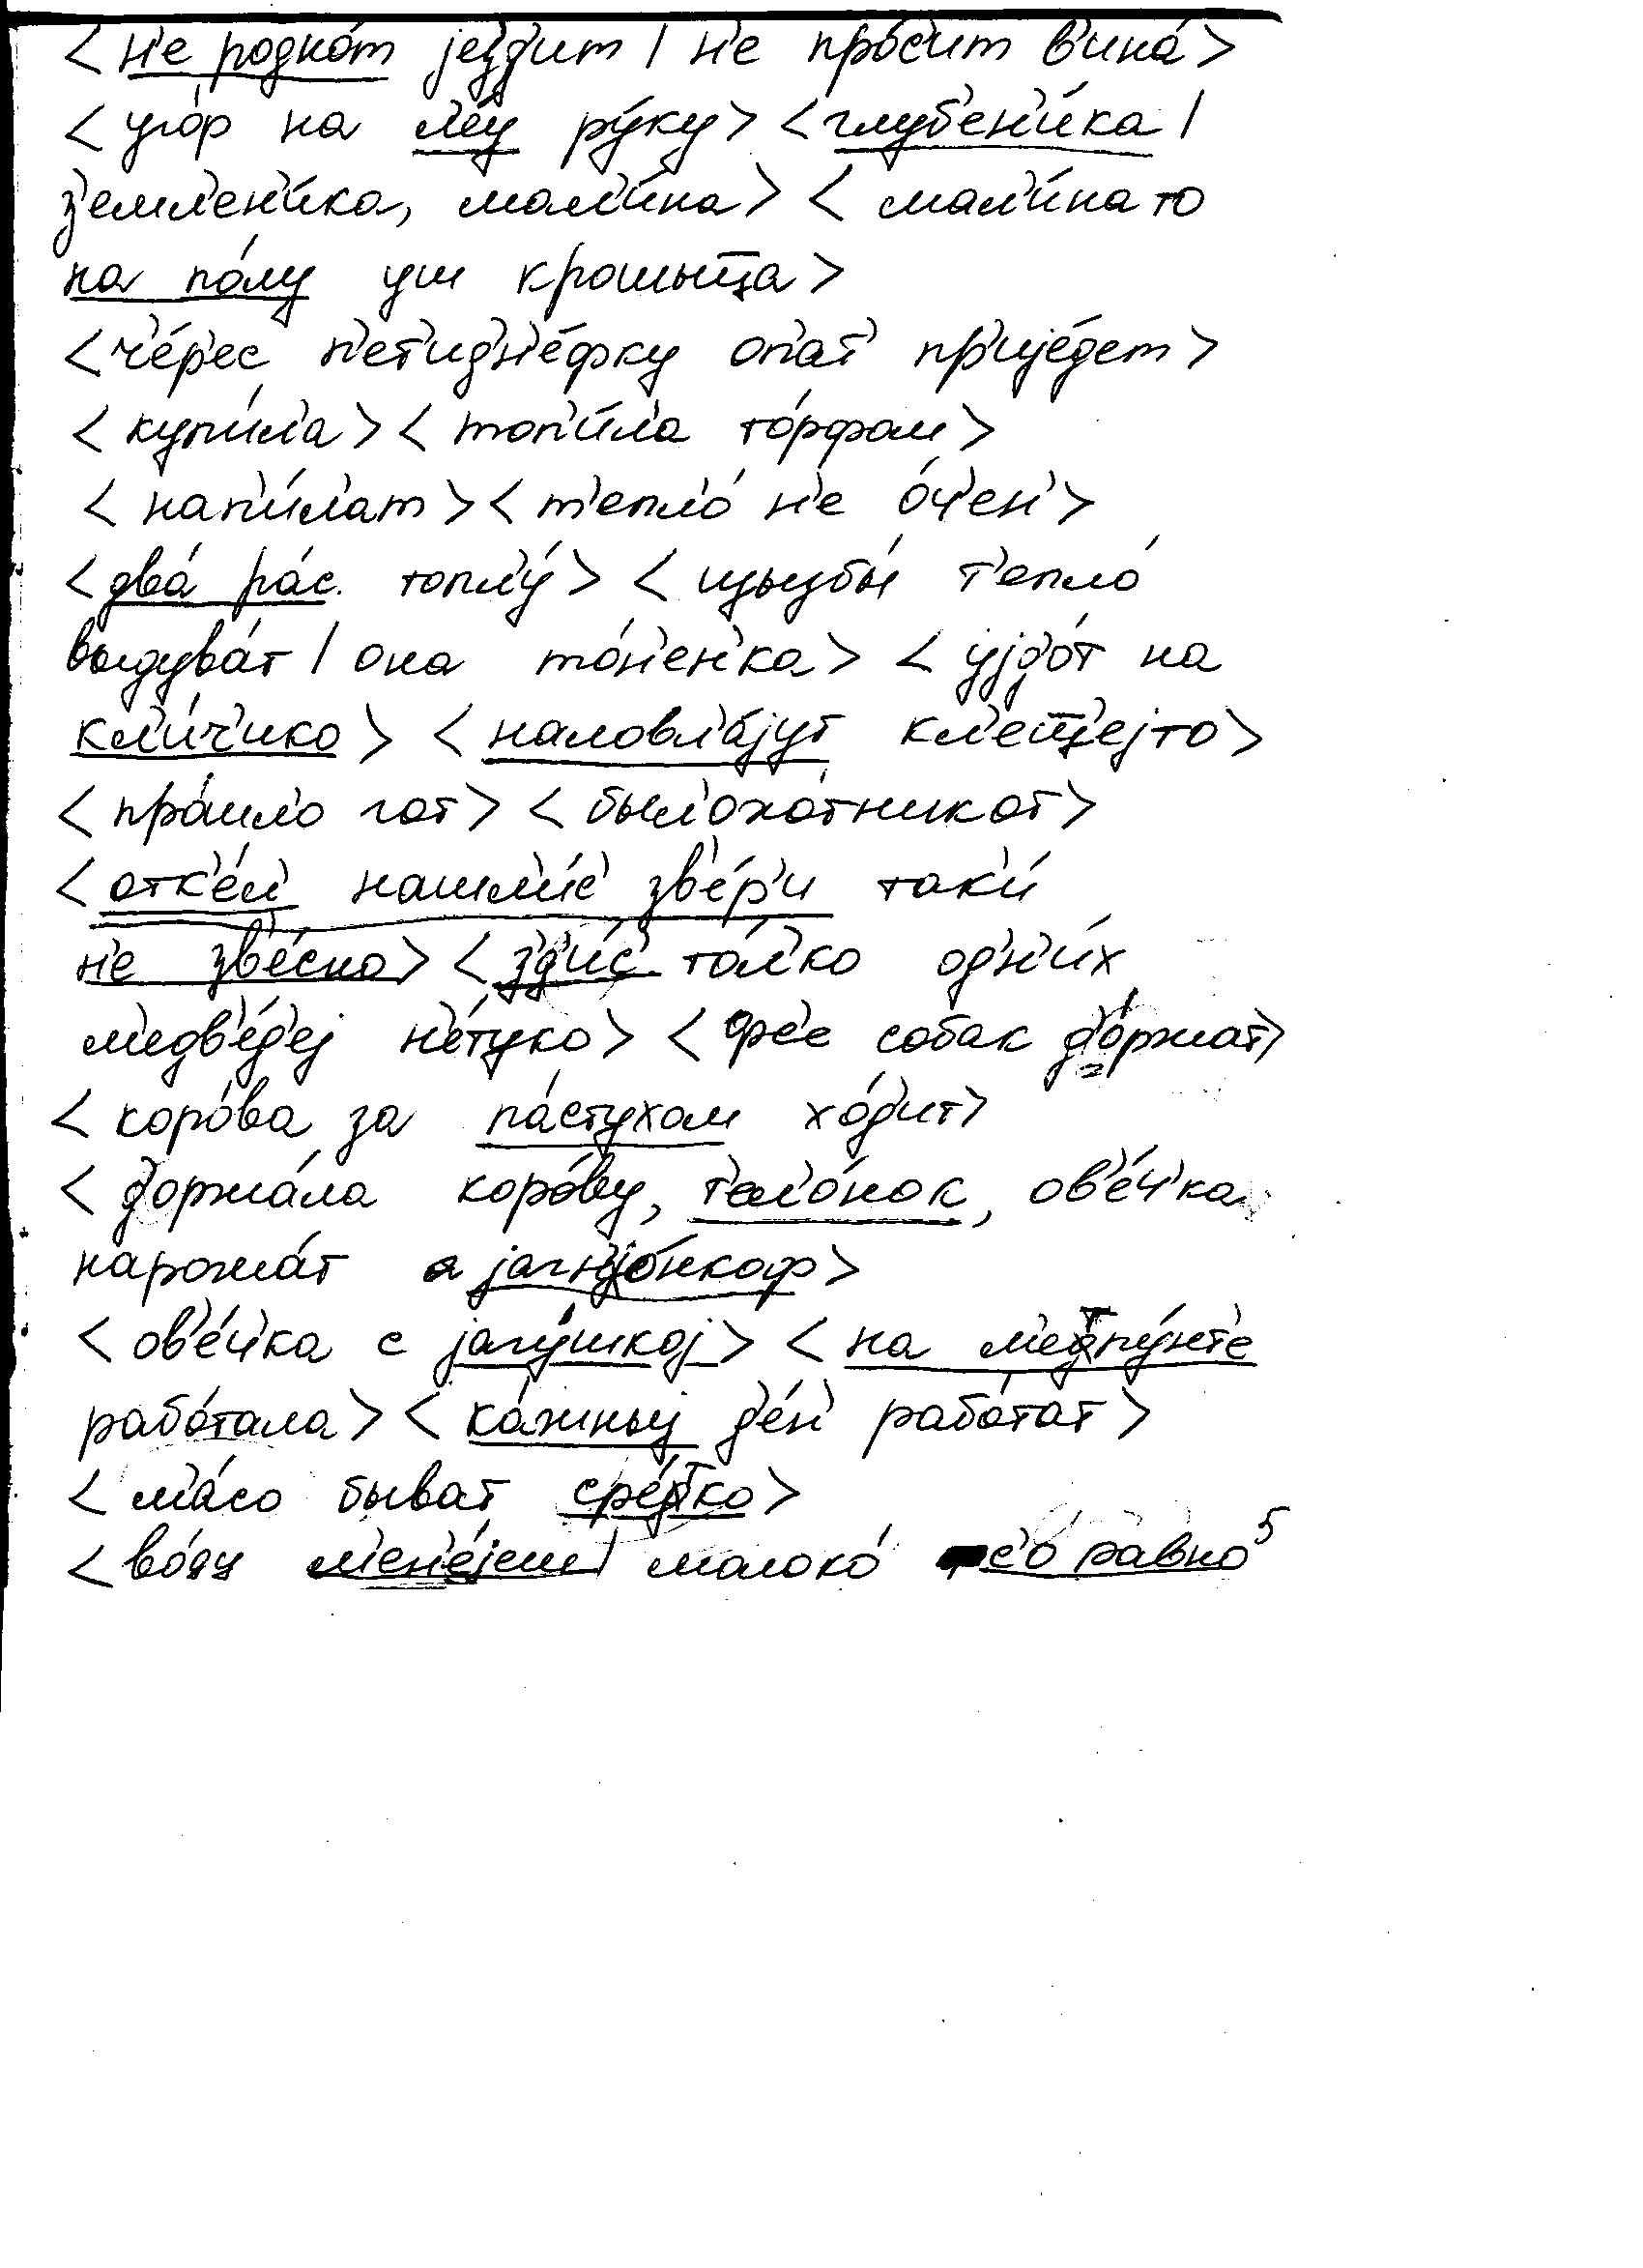 < н'е родно́т jе́зд'ит / н'е про́с'ит в'ина́ >
< уго́р на л'е́у ру́ку > < глуб'ен'и́ка /
з'емл'ен'и́ка, мал'и́на > < мал'и́на то
на по́лу уш крошыц̅а >
< ч'е́р'ес п'ет'идн'е́фку оп'ат' пр'иjе́дет >
< куп'и́ла > < топ'и́ла то́рфом >
< нап'и́л'ат > < т'епло́ н'е о́ч'ен' >
< два́ ра́с. топл'у́ > < изызбы́ т'епло́
выдува́т / она то́н'ен'ка > < уjдо́т на
кл'и́ч'ико > < наловл'а́jут кл'ещ̅'еjто >
< пра́шло гот > < был охо́тникот >
< отк'е́л' нашл'и́с' зв'е́р'и так'и́
н'е зв'е́сно > < зд'и́с'. то́л'ко одн'и́х
м'едв'е́д'еj н'е́туко > < фс'е собак д'о́ржат >
< коро́ва за па́стухом хо́д'ит >
< д'оржа́ла коро́ву, т'ол'о́нок, ов'е́ч'ка
нарожа́т jагнjо́нкоф >
< ов'е́ч'ка с jагу́шкоj > < на м'етпу́нт'е
рабо́тала > < ка́жныj д'е́н' рабо́тат >
< м'а́со быват ср'е́тко >
< во́ду м'ен'е́jеш / молоко́ с'о́ равно 5